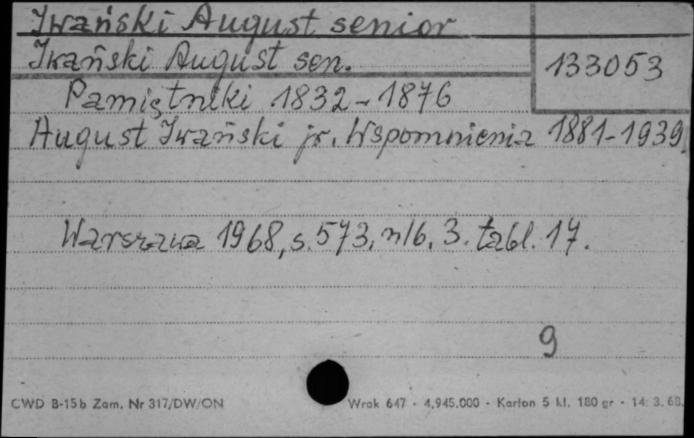 Iwański August senior
Iwański August sen.
133053
Pamiętniki 1832-1876
August Iwański jr. Wspomnienia 1881-1939
Warszawa 1968, s. 573, nlb. 3. tabl. 17.
9
CWD B-15b Zam. Nr 317/DW/ON
Wrak 647 - 4.945.000 - Karton 5 kl. 180 gr - 14. 3. 68.